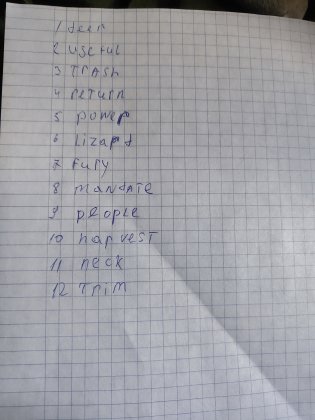 1 deer
2 useful
3 TRASH
4 return
5 power
6 lizard
7 fury
8 MANDATE
9 people
10 harvest
11 neck
12 Trim